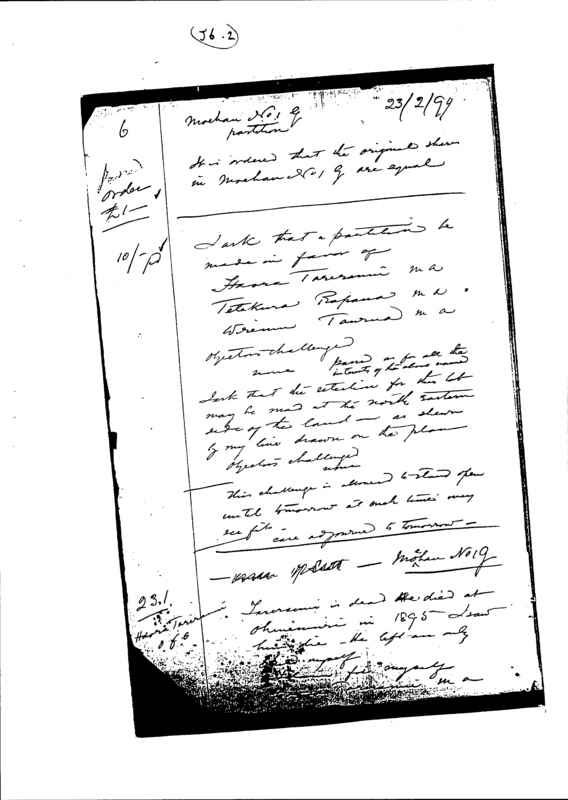 J6.2
6
Moehau No. 1 G
23/2/99
partition
It is ordered that the original shares
in Moehau No 1 G are equal
order
£1—
10/-
I ask that a partition be
made in favor of
Haora Tareranui m a
Tetekura Rapana m a.
Wiremu Taurua m a
Objectors challenged
none
passed as for all the
interests of the above named
I ask that the selection for this lot
may be mad at the north eastern
side of the land — as shewn
by my line drawn on the plan
Objectors challenged
none
This challenge is allowed to stand open
until tomorrow at such time may
see fit
case adjourned to tomorrow —
Moehau No 1 G
23.1
Haora Tareranui
o f o
Tareranui is dead He died at
Ohinemuri in 1895 I saw
him die He left an only
myself
for myself
m a